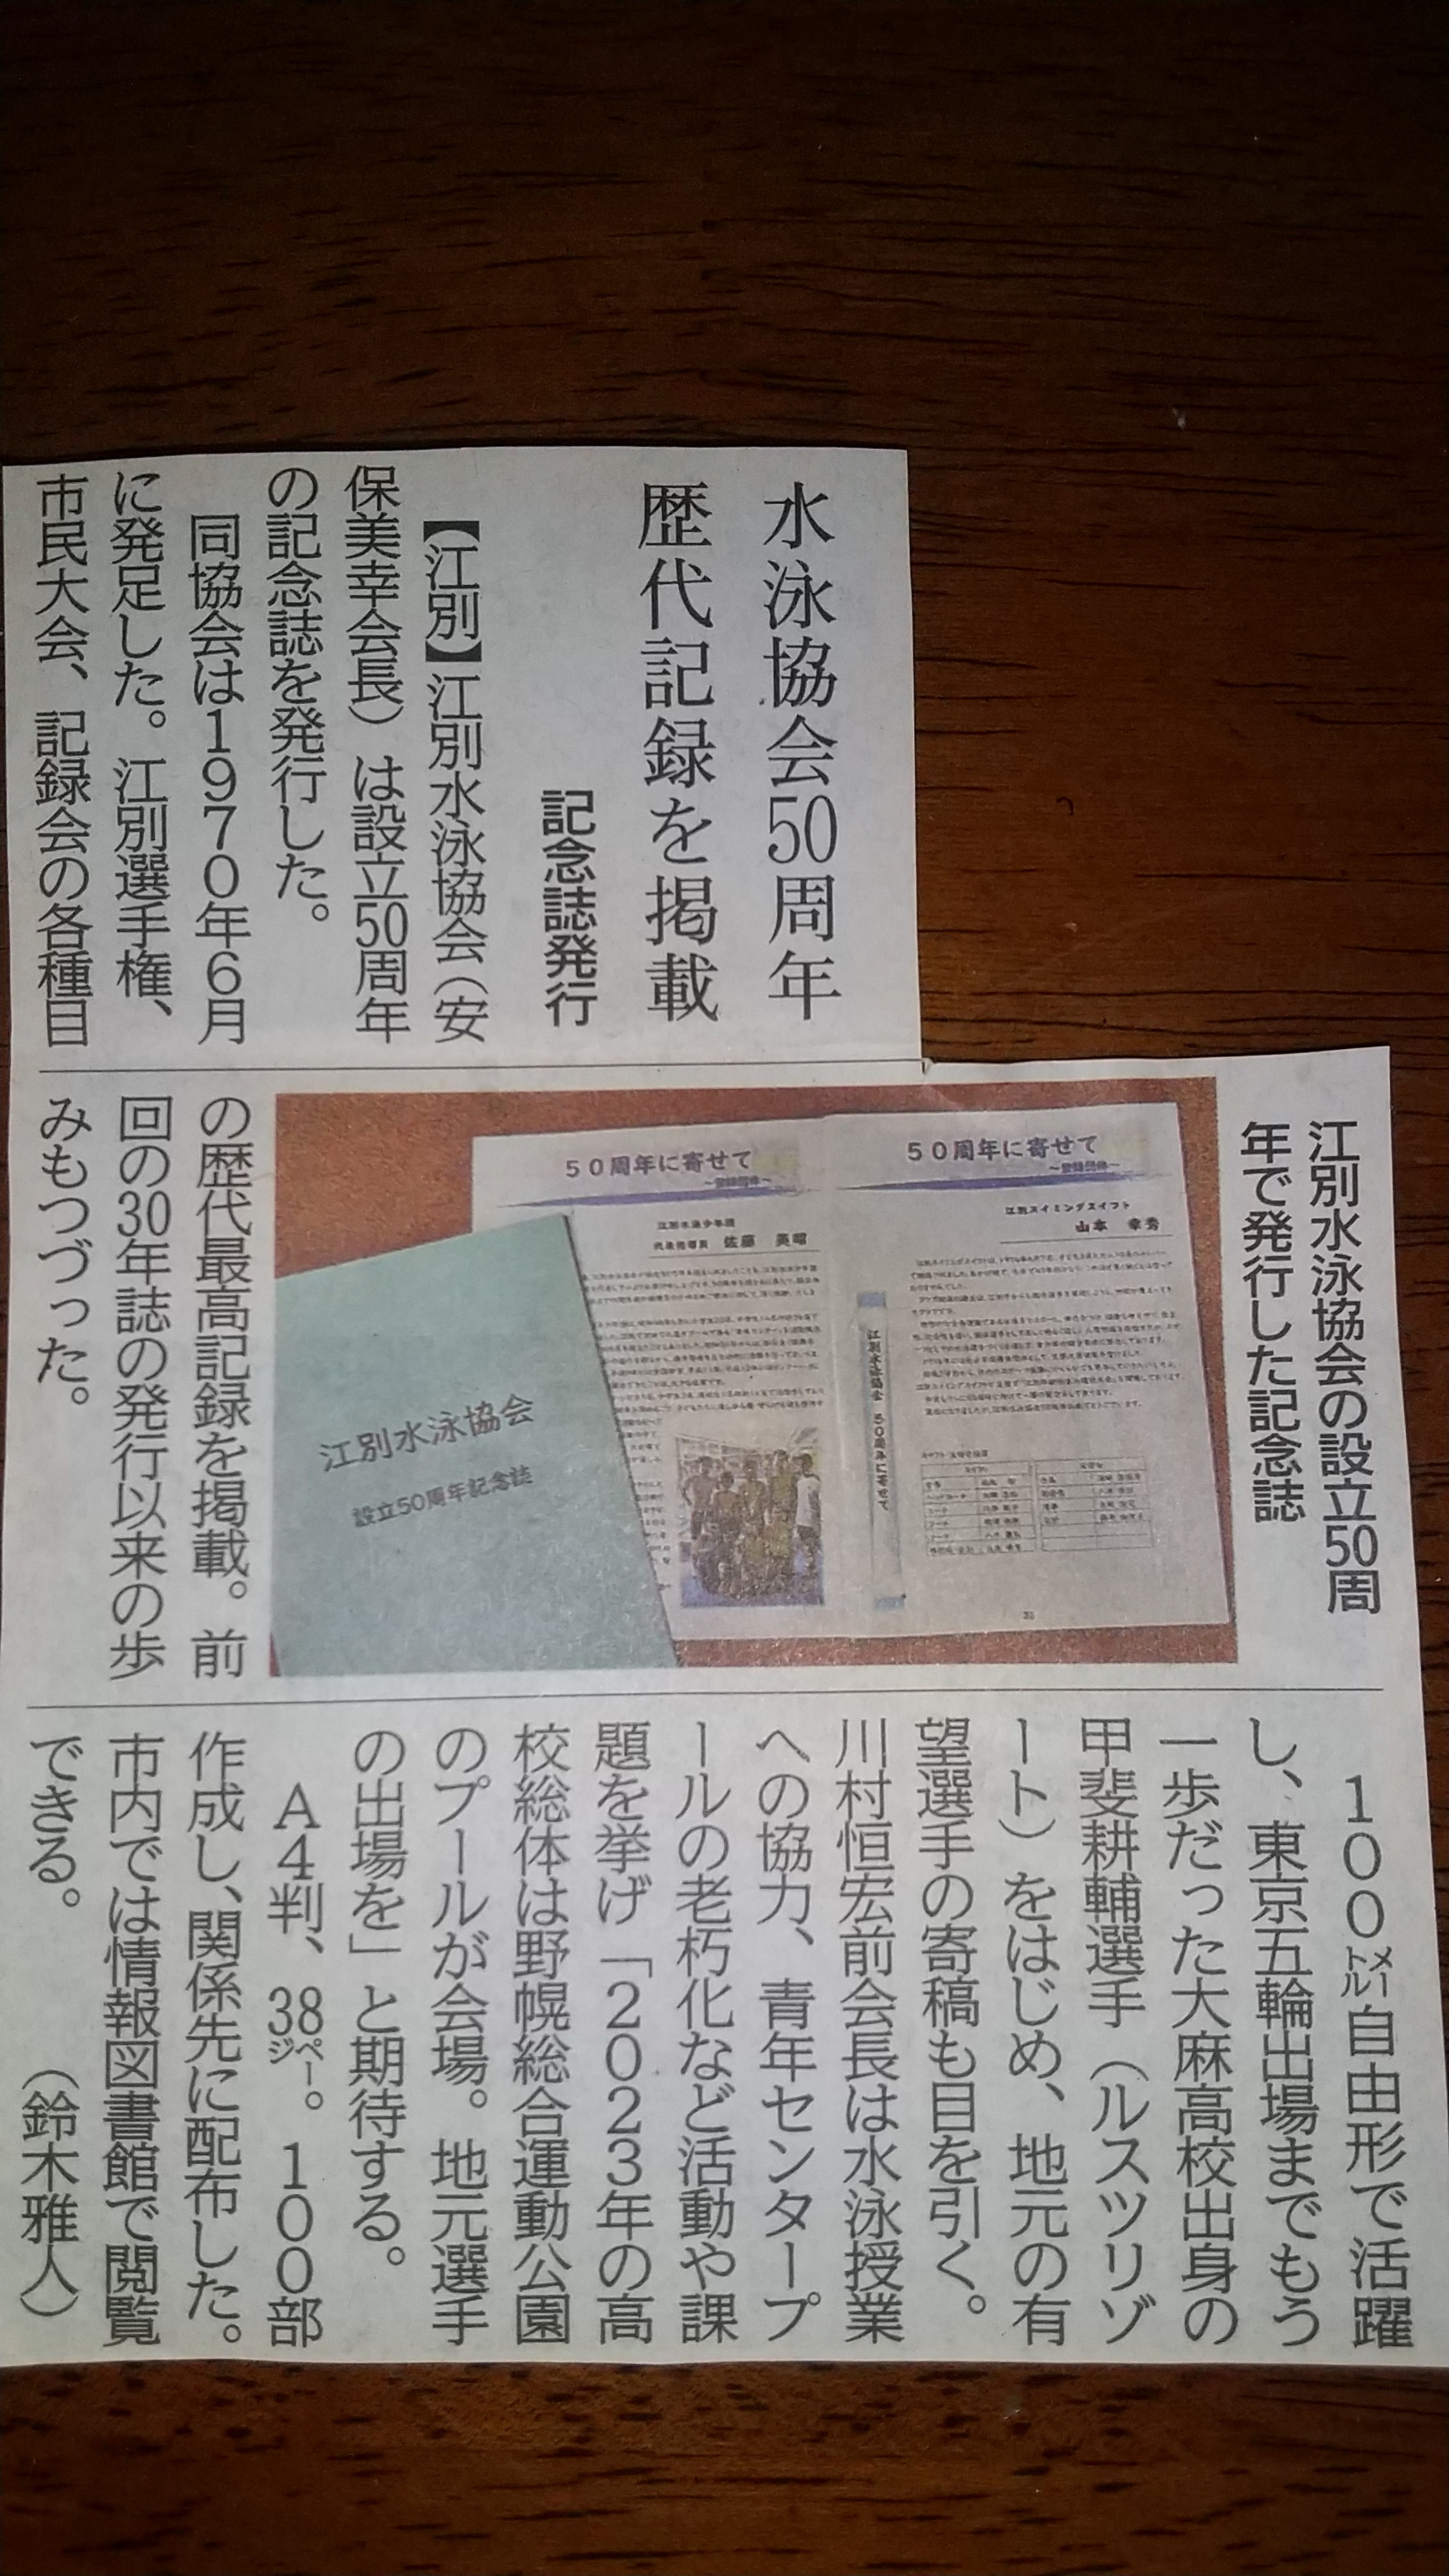 水泳協会50周年
歴代記録を掲載
記念誌発行
【江別】江別水泳協会（安
保美幸会長）は設立50周年
の記念誌を発行した。
同協会は１９７０年６月
に発足した。江別選手権、
市民大会、記録会の各種目
江別水泳協会の設立50周
年で発行した記念誌
５０周年に寄せて
～登録団体～
江別スイミングスイフト
山本　幸秀
江別水泳協会　５０周年に寄せて
５０周年に寄せて
～登録団体～
江別水泳少年団
代表指導員　佐藤　美昭
江別水泳協会
設立50周年記念誌
の歴代最高記録を掲載。前
回の30年誌の発行以来の歩
みもつづった。
１００㍍自由形で活躍
し、東京五輪出場までもう
一歩だった大麻高校出身の
甲斐耕輔選手（ルスツリゾ
ート）をはじめ、地元の有
望選手の寄稿も目を引く。
川村恒宏前会長は水泳授業
への協力、青年センタープ
ールの老朽化など活動や課
題を挙げ「２０２３年の高
校総体は野幌総合運動公園
のプールが会場。地元選手
の出場を」と期待する。
Ａ４判、38㌻。１００部
作成し、関係先に配布した。
市内では情報図書館で閲覧
できる。　（鈴木雅人）